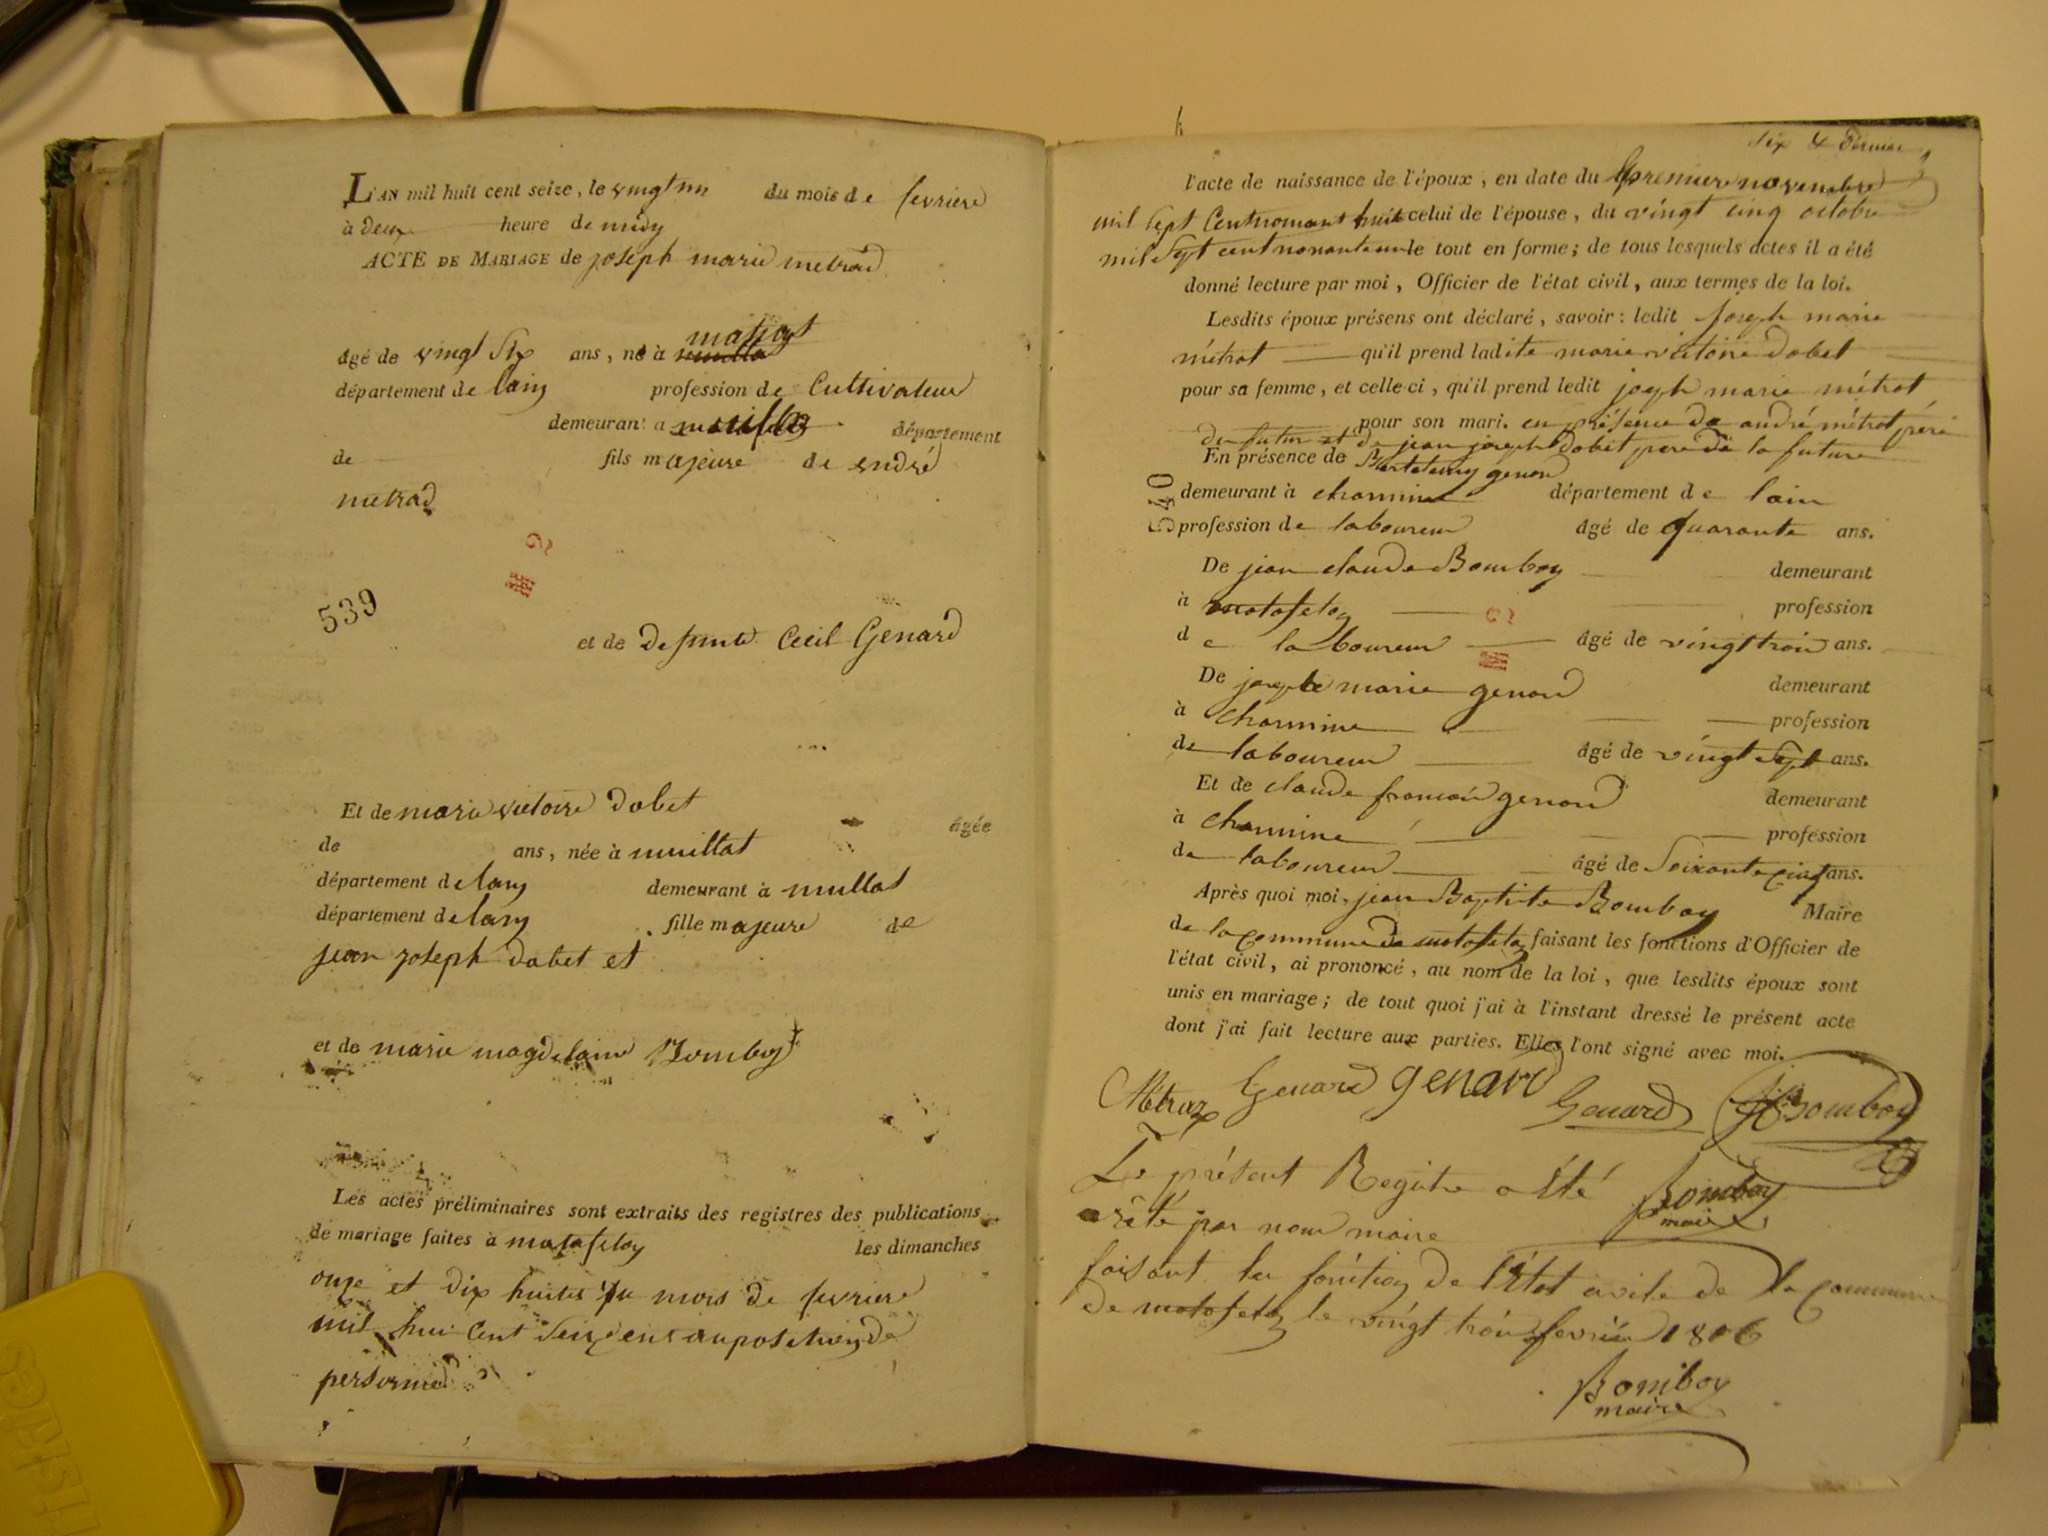 L'AN mil huit cent seize, le vingt un du mois de fevriere
à deux heure de midy
ACTE DE MARIAGE de joseph marie metrad
matiat
âgé de vingt six ans, né à
département de lain profession de Cultivateur
demeurant a département
de fils majeure de endré
metrad
539
et de defunte Cecil Genard
Et de marie victoire dabet
âgée
de ans, née à muillat
département de lain demeurant à mullat
département de lain fille majeure de
jean joseph dabet et
et de marie magdelaine Bomboy
Les actes préliminaires sont extraits des registres des publications
de mariage faites à matafeloy les dimanches
onze et dix huites du mois de fevriere
mil hui cent seize ens auposition de
personne
six & dernier
l'acte de naissance de l'époux, en date du premiere novembre
mil sept Cent huit celui de l'épouse, du vingt cinq octobre
mil sept cent le tout en forme; de tous lesquels actes il a été
donné lecture par moi, Officier de l'état civil, aux termes de la loi.
Lesdits époux présens ont déclaré, savoir: ledit joseph marie
métrat qu'il prend ladite marie victoire dabet
pour sa femme, et celle ci, qu'il prend ledit joseph marie métrat
pour son mari. en présence de andré métrat père
du futur et de jean joseph dabet pere de la future
En présence de Bartelemy genard
540
demeurant à charmine département de lain
profession de laboureur âgé de quarante ans.
De jean claude Bomboy demeurant
à matafeloy profession
de laboureur âgé de vingt trois ans.
De joseph marie genard demeurant
à charmine profession
de laboureur âgé de vingt sept ans.
Et de claude francois genard demeurant
à charmine profession
de laboureur âgé de soixante cinq ans.
Après quoi moi, jean Baptiste Bomboy Maire
de la commune de matafeloy faisant les fonctions d'Officier de
l'état civil, ai prononcé, au nom de la loi, que lesdits époux sont
unis en mariage; de tout quoi j'ai à l'instant dressé le présent acte
dont j'ai fait lecture aux parties. Elles l'ont signé avec moi.
Métraz Genard genard Genard Bomboy
Le présent Registre a été Bomboy
arèté par nous maire maire
faisant les fonction de l'état civile de la commune
de matafeloy le vingt trois fevrier 1806
Bomboy
maire